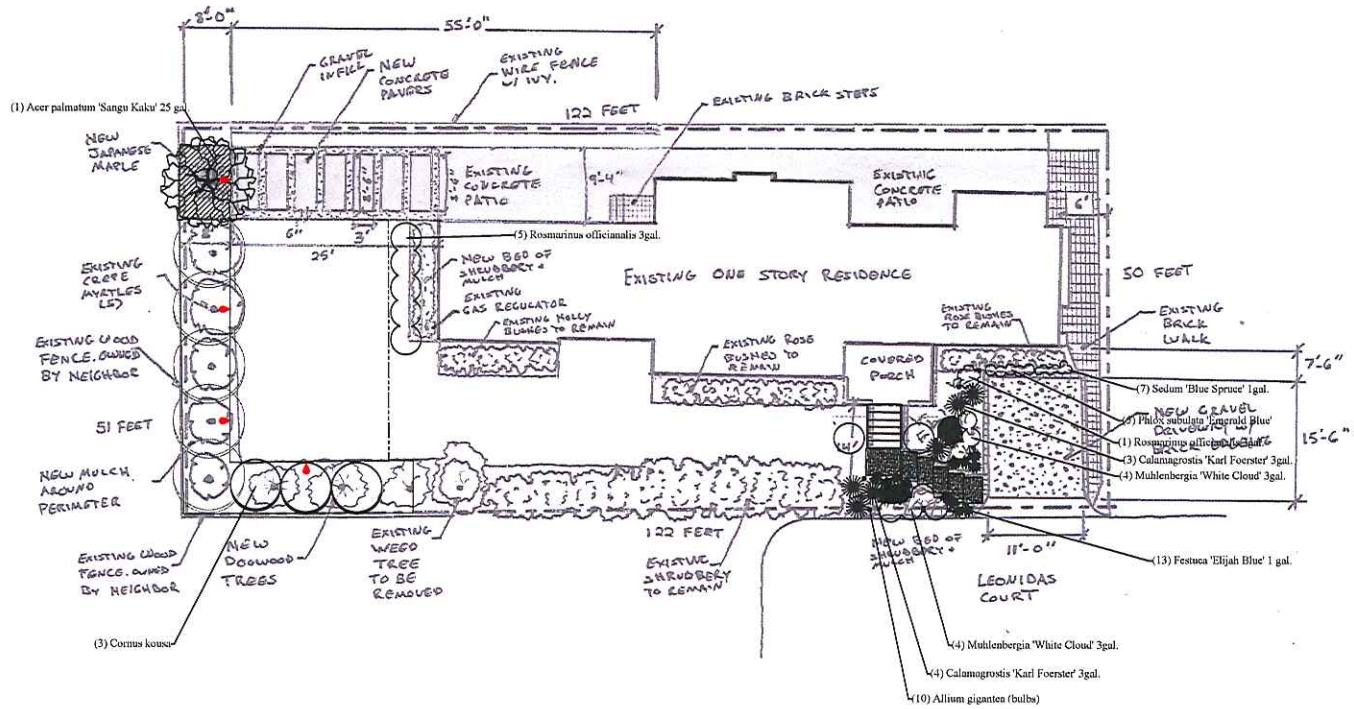 8'-0"
55'-0"
GRAVEL
INFILL
NEW
CONCRETE
PAVERS
EXISTING
WIRE FENCE
W/ IVY.
(1) Acer palmatum 'Sangu Kaku' 25 gal.
122 FEET
EXISTING BRICK STEPS
NEW
JAPANESE
MAPLE
EXISTING
CONCRETE
PATIO
9'-4"
EXISTING
CONCRETE
PATIO
6'
8'
6"
3'
25'
(5) Rosmarinus officianalis 3gal.
EXISTING
CREPE
MYRTLES
(5)
NEW BED OF
SHRUBBERY +
MULCH
EXISTING
GAS REGULATOR
EXISTING HOLLY
BUSHES TO REMAIN
EXISTING ONE STORY RESIDENCE
50 FEET
EXISTING WOOD
FENCE. OWNED
BY NEIGHBOR
EXISTING ROSE
BUSHES TO
REMAIN
COVERED
PORCH
EXISTING
ROSE BUSHES
TO REMAIN
EXISTING
BRICK
WALK
7'-6"
(7) Sedum 'Blue Spruce' 1gal.
Phlox subulata 'Emerald Blue'
NEW GRAVEL
DRIVEWAY W/
BRICK
(1) Rosmarinus
15'-6"
(3) Calamagrostis 'Karl Foerster' 3gal.
(4) Muhlenbergia 'White Cloud' 3gal.
51 FEET
NEW MULCH
AROUND
PERIMETER
EXISTING WOOD
FENCE. OWNED
BY NEIGHBOR
NEW
DOGWOOD
TREES
EXISTING
WEED
TREE
TO BE
REMOVED
122 FEET
EXISTING
SHRUBBERY
TO REMAIN
NEW BED OF
SHRUBBERY +
MULCH
11'-0"
(13) Festuca 'Elijah Blue' 1 gal.
LEONIDAS
COURT
(3) Cornus kousa
(4) Muhlenbergia 'White Cloud' 3gal.
(4) Calamagrostis 'Karl Foerster' 3gal.
(10) Allium gigantea (bulbs)